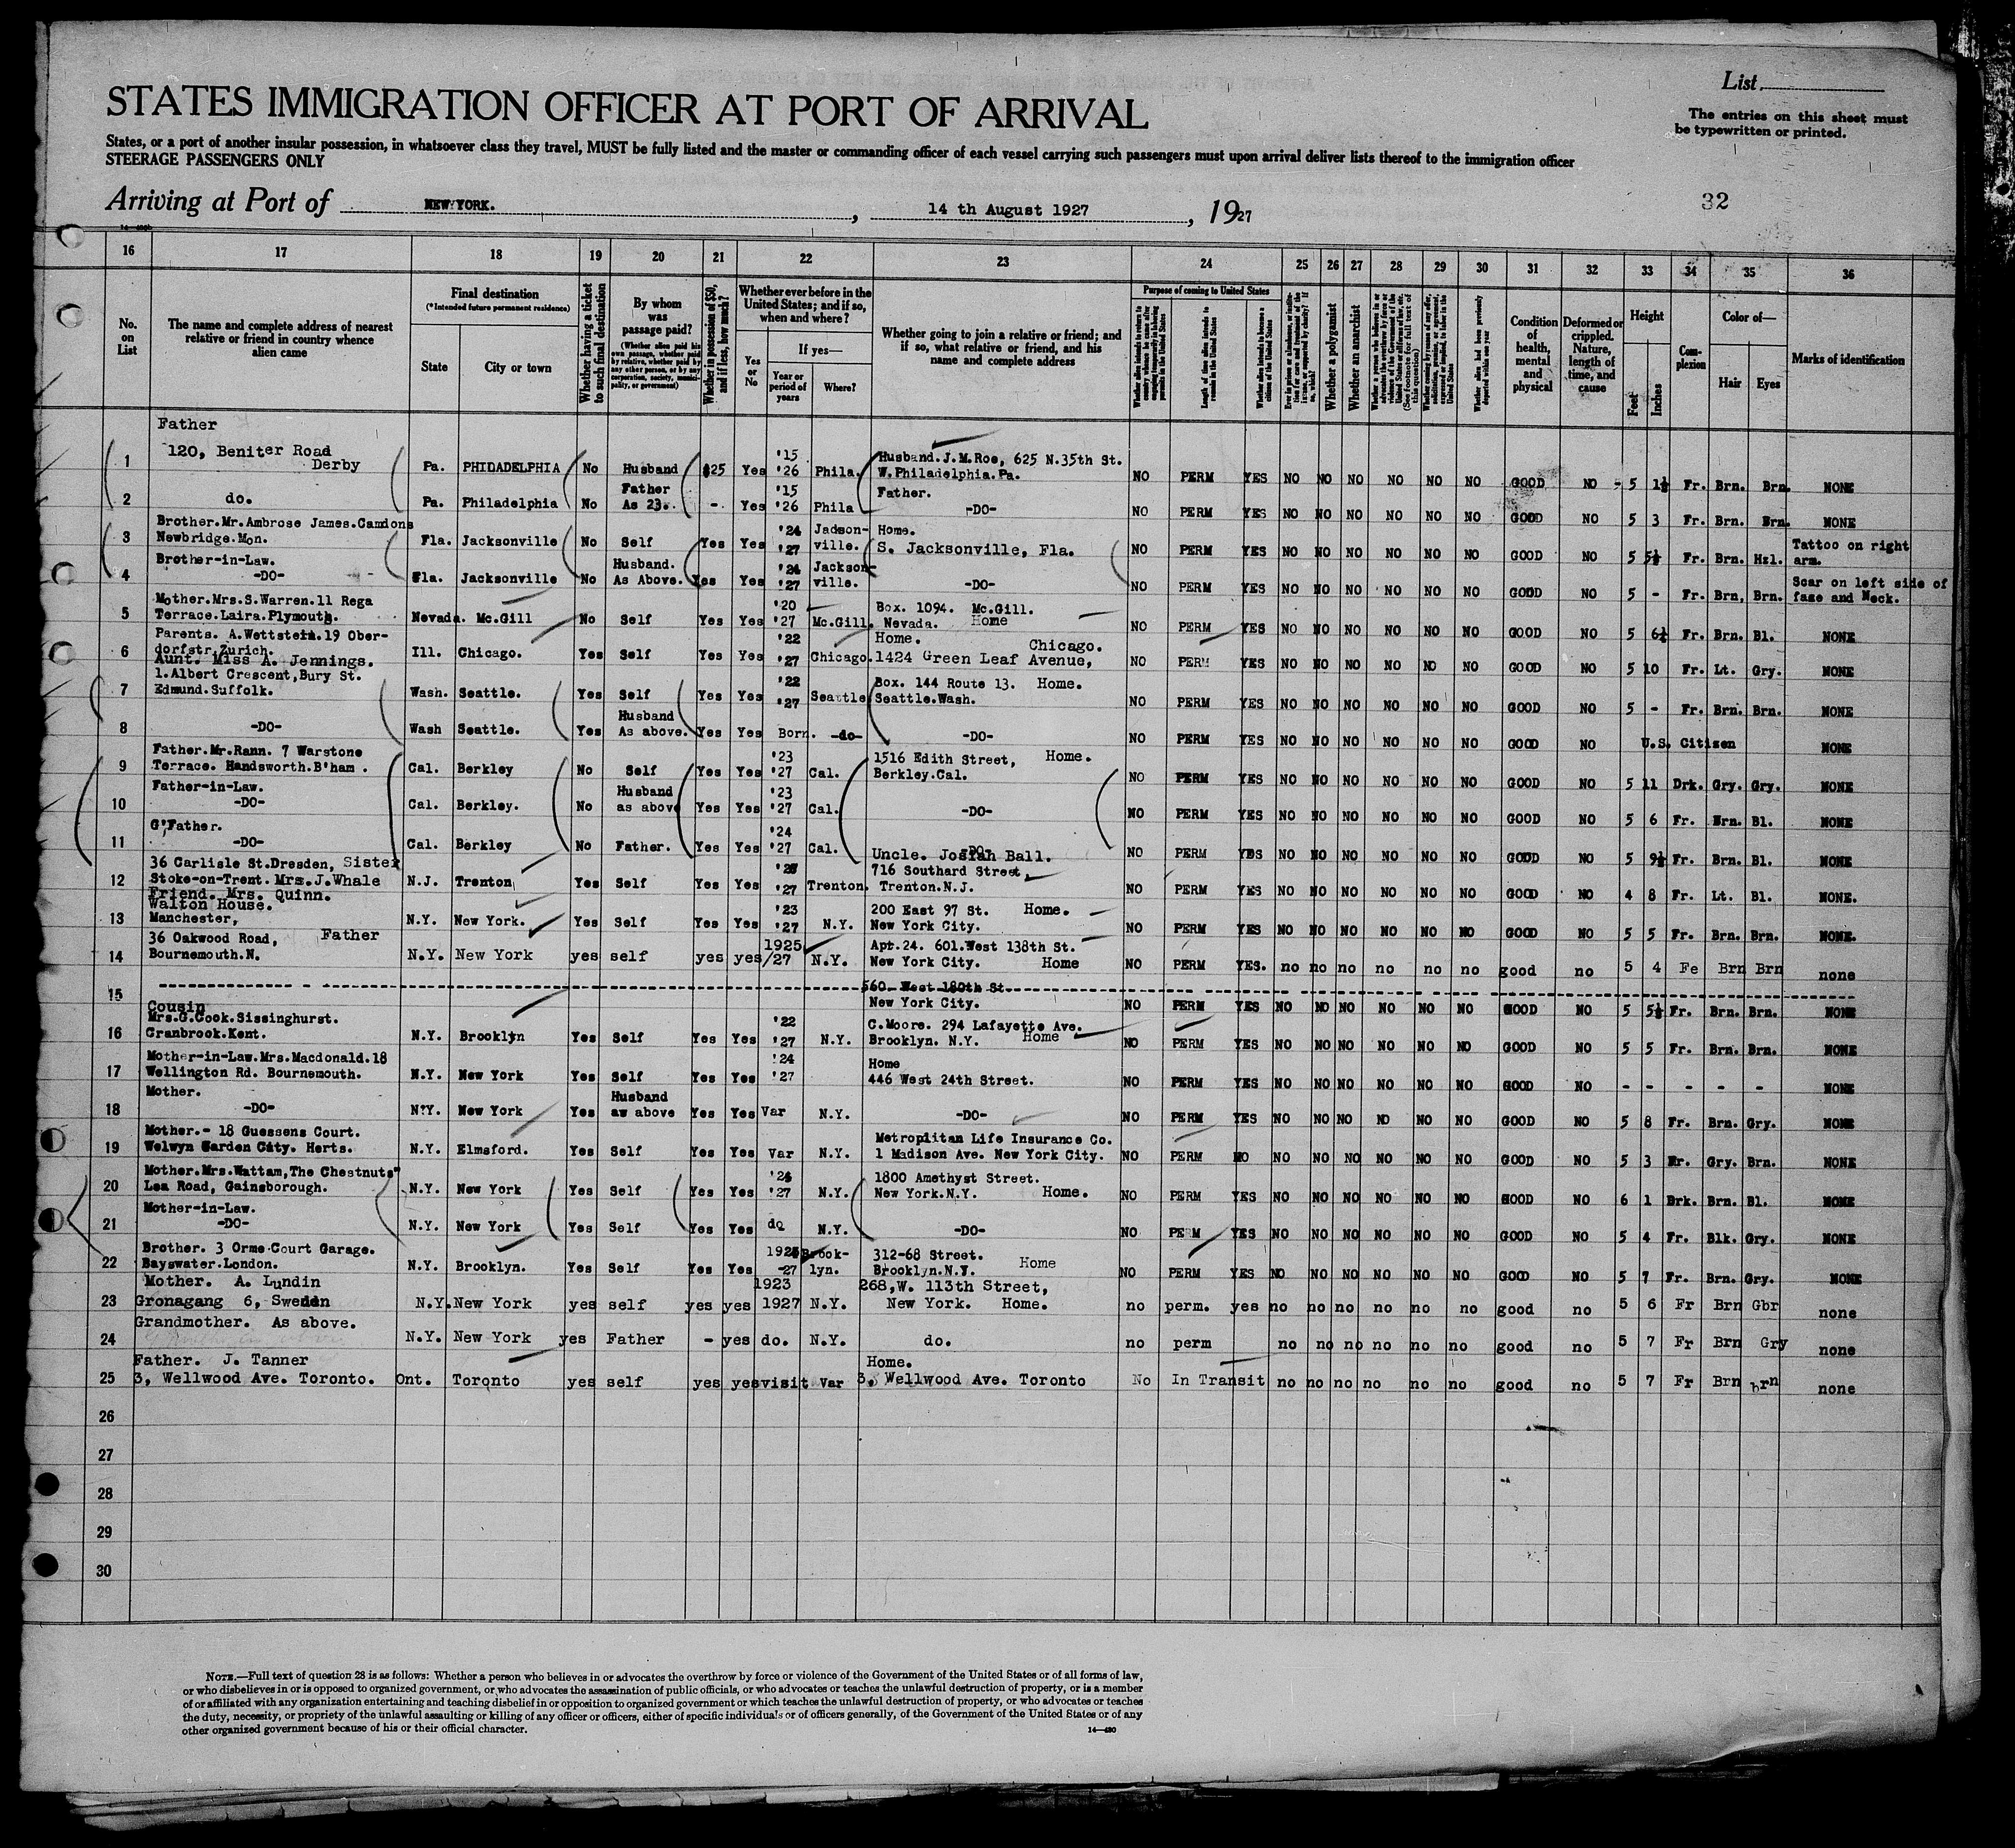 List
STATES IMMIGRATION OFFICER AT PORT OF ARRIVAL
The entries on this sheet must
be typewritten or printed.
States, or a port of another insular possession, in whatsoever class they travel, MUST be fully listed and the master or commanding officer of each vessel carrying such passengers must upon arrival deliver lists thereof to the immigration officer
STEERAGE PASSENGERS ONLY
Arriving at Port of NEW YORK. , 14 th August 1927 , 1927
32
16 17 18 19 20 21 22 23 24 25 26 27 28 29 30 31 32 33 34 35 36
No. on List
The name and complete address of nearest relative or friend in country whence alien came
Final destination
(*Intended future permanent residence)
State
City or town
Whether having a ticket to such final destination
By whom was passage paid?
(Whether alien paid his own passage, whether paid by relative, whether paid by any other person, or by any corporation, society, municipality, or government)
Whether in possession of $50, and if less, how much?
Whether ever before in the United States; and if so, when and where?
Yes or No
If yes—
Year or period of years
Where?
Whether going to join a relative or friend; and if so, what relative or friend, and his name and complete address
Purpose of coming to United States
Length of time alien intends to remain in the United States
Whether alien intends to become a citizen of the United States
Whether a polygamist
Whether an anarchist
Whether alien had been previously deported within one year
Condition of health, mental and physical
Deformed or crippled. Nature, length of time, and cause
Height
Feet
Inches
Complexion
Color of—
Hair
Eyes
Marks of identification
1 Father 120, Beniter Road Derby Pa. PHILADELPHIA No Husband $25 Yes '15 '26 Phila. Husband.J.M.Roe, 625 N.35th St. W.Philadelphia.Pa. NO PERM YES NO NO NO NO NO NO GOOD NO 5 1½ Fr. Brn. Brn. NONE
2 do. Pa. Philadelphia No Father As 23. - Yes '15 '26 Phila Father. -DO- NO PERM YES NO NO NO NO NO NO GOOD NO 5 3 Fr. Brn. Brn. NONE
3 Brother.Mr.Ambrose James.Camdons Newbridge.Mon. Fla. Jacksonville No Self Yes Yes '24 '27 Jadson-ville. Home. S. Jacksonville, Fla. NO PERM YES NO NO NO NO NO NO GOOD NO 5 5½ Fr. Brn. Hzl. Tattoo on right arm.
4 Brother-in-Law. -DO- Fla. Jacksonville No Husband. As Above. Yes Yes '24 '27 Jackson-ville. -DO- NO PERM YES NO NO NO NO NO NO GOOD NO 5 - Fr. Brn, Brn. Scar on left side of face and Neck.
5 Mother.Mrs.S.Warren.11 Rega Terrace.Laira.Plymouth. Nevada. Mc.Gill No Self Yes Yes '20 '27 Mc.Gill. Box. 1094. Mc.Gill. Nevada. Home NO PERM YES NO NO NO NO NO NO GOOD NO 5 6½ Fr. Brn. Bl. NONE
6 Parents. A.Wettstein.19 Ober-dorfstr.Zurich. Ill. Chicago. Yes Self Yes Yes '22 '27 Chicago. Home. Chicago. 1424 Green Leaf Avenue, NO PERM YES NO NO NO NO NO NO GOOD NO 5 10 Fr. Lt. Gry. NONE
7 Aunt. Miss A. Jennings. 1.Albert Crescent,Bury St. Edmund.Suffolk. Wash. Seattle. Yes Self Yes Yes '22 '27 Seattle Box. 144 Route 13. Home. Seattle.Wash. NO PERM YES NO NO NO NO NO NO GOOD NO 5 - Fr. Brn. Brn. NONE
8 -DO- Wash Seattle. Yes Husband As above. Yes Yes Born. -do- -DO- NO PERM YES NO NO NO NO NO NO GOOD NO U.S. Citizen NONE
9 Father.Mr.Rann. 7 Warstone Terrace. Handsworth.B'ham. Cal. Berkley No Self Yes Yes '23 '27 Cal. 1516 Edith Street, Home. Berkley.Cal. NO PERM YES NO NO NO NO NO NO GOOD NO 5 11 Drk. Gry. Gry. NONE
10 Father-in-Law. -DO- Cal. Berkley. No Husband as above Yes Yes '23 '27 Cal. -DO- NO PERM YES NO NO NO NO NO NO GOOD NO 5 6 Fr. Brn. Bl. NONE
11 G'Father. -DO- Cal. Berkley No Father. Yes Yes '24 '27 Cal. -DO- NO PERM YES NO NO NO NO NO NO GOOD NO 5 9½ Fr. Brn. Bl. NONE
12 36 Carlisle St.Dresden, Sister Stoke-on-Trent. Mrs.J.Whale N.J. Trenton Yes Self Yes Yes '27 Trenton. Uncle. Josiah Ball. 716 Southard Street, Trenton.N.J. NO PERM YES NO NO NO NO NO NO GOOD NO 4 8 Fr. Lt. Bl. NONE.
13 Friend. Mrs. Quinn. Walton House. Manchester, N.Y. New York. Yes Self Yes Yes '23 '27 N.Y. 200 East 97 St. Home. New York City. NO PERM YES NO NO NO NO NO NO GOOD NO 5 5 Fr. Brn. Brn. NONE.
14 36 Oakwood Road, Father Bournemouth.N. N.Y. New York yes self yes yes 1925 /27 N.Y. Apt.24. 601.West 138th St. New York City. Home NO PERM YES. no no no no no no good no 5 4 Fe Brn Brn none
15 560 West 180th St. New York City. NO PERM YES NO NO NO NO NO NO GOOD NO 5 5½ Fr. Brn. Brn. NONE
16 Cousin Mrs.G.Cook.Sissinghurst. Cranbrook.Kent. N.Y. Brooklyn Yes Self Yes Yes '22 '27 N.Y. C.Moore. 294 Lafayette Ave. Brooklyn. N.Y. Home NO PERM YES NO NO NO NO NO NO GOOD NO 5 5 Fr. Brn. Brn. NONE
17 Mother-in-Law.Mrs.Macdonald.18 Wellington Rd. Bournemouth. N.Y. New York Yes Self Yes Yes '24 '27 Home 446 West 24th Street. NO PERM YES NO NO NO NO NO NO GOOD NO - - - - - NONE
18 Mother. -DO- N.Y. New York Yes Husband as above Yes Yes Var N.Y. -DO- NO PERM YES NO NO NO NO NO NO GOOD NO 5 8 Fr. Brn. Gry. NONE
19 Mother.- 18 Guessens Court. Welwyn Garden City. Herts. N.Y. Elmsford. Yes Self Yes Yes Var N.Y. Metroplitan Life Insurance Co. 1 Madison Ave. New York City. NO PERM NO NO NO NO NO NO NO GOOD NO 5 3 Fr. Gry. Brn. NONE
20 Mother.Mrs.Wattam,The Chestnuts" Lea Road, Gainsborough. N.Y. New York Yes Self Yes Yes '24 '27 N.Y. 1800 Amethyst Street. New York.N.Y. Home. NO PERM YES NO NO NO NO NO NO GOOD NO 6 1 Brk. Brn. Bl. NONE
21 Mother-in-Law. -DO- N.Y. New York Yes Self Yes Yes do N.Y. -DO- NO PERM YES NO NO NO NO NO NO GOOD NO 5 4 Fr. Blk. Gry. NONE
22 Brother. 3 Orme Court Garage. Bayswater.London. N.Y. Brooklyn. Yes Self Yes Yes -27 Brook-lyn. 312-68 Street. Home Brooklyn.N.Y. NO PERM YES NO NO NO NO NO NO GOOD NO 5 7 Fr. Brn. Gry. NONE
23 Mother. A. Lundin Gronagang 6, Sweden N.Y. New York yes self yes yes 1923 1927 N.Y. 268,W. 113th Street, New York. Home. no perm. yes no no no no no no good no 5 6 Fr Brn Gbr none
24 Grandmother. As above. N.Y. New York yes Father - yes do. N.Y. do. no perm no no no no no no good no 5 7 Fr Brn Gry none
25 Father. J. Tanner 3, Wellwood Ave. Toronto. Ont. Toronto yes self yes yes visit Var Home. 3, Wellwood Ave. Toronto No In Transit no no no no no no good no 5 7 Fr Brn brn none
26
27
28
29
30
NOTE.—Full text of question 28 is as follows: Whether a person who believes in or advocates the overthrow by force or violence of the Government of the United States or of all forms of law,
or who disbelieves in or is opposed to organized government, or who advocates the assassination of public officials, or who advocates or teaches the unlawful destruction of property, or is a member
of or affiliated with any organization entertaining and teaching disbelief in or opposition to organized government or which teaches the unlawful destruction of property, or who advocates or teaches
the duty, necessity, or propriety of the unlawful assaulting or killing of any officer or officers, either of specific individuals or of officers generally, of the Government of the United States or of any
other organized government because of his or their official character.
14—480